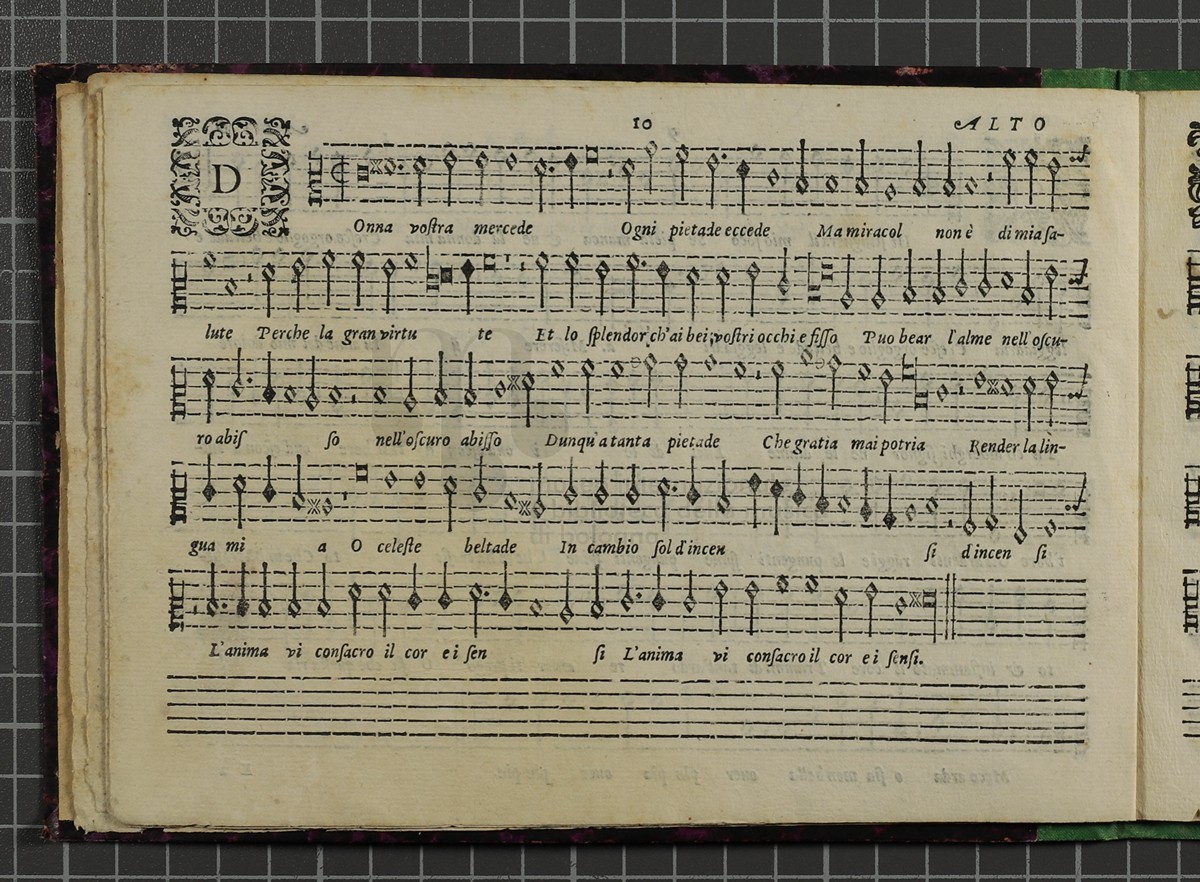 10 ALTO
D
Onna voſtra mercede Ogni pietade eccede Ma miracol non è di mia ſa-
lute Perche la gran virtu te Et lo ſplendor ch'ai bei voſtri occhi e fiſſo Puo bear l'alme nell oſcu-
ro abiſ ſo nell'oſcuro abiſſo Dunqu'a tanta pietade Che gratia mai potria Render la lin-
gua mi a O celeſte beltade In cambio ſol d'incen ſi d'incen ſi
L'anima vi conſacro il cor e i ſen ſi L'anima vi conſacro il cor e i ſenſi.